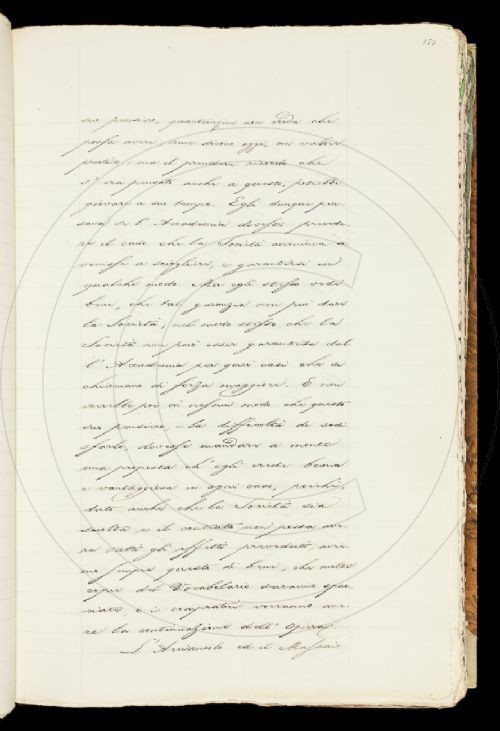 151
suo pensiero, quantunque non creda che
possa avere, come diceva oggi, un valore
pratico; ma il prendere ricordo che
s'era pensato anche a questo, potrebbe
giovare a suo tempo. Egli dunque pen
sava se l'Accademia dovesse prevede
re il caso che la Società venisse a
sciogliersi, e garantirsi in
qualche modo. Ma egli stesso vede
bene, che tal garanzia non può dare
la Società; nel modo stesso che la
Società non può esser garantita dal
l'Accademia per quei casi che si
chiamano di forza maggiore. E non
vorrebbe poi in nessun modo che questo
suo pensiero, e la difficoltà di sodi
sfarlo, dovesse mandare a monte
una proposta ch'egli crede buona
e vantaggiosa in ogni caso, perchè,
dato anche che la Società sia
sciolta, e il contratto non possa ave
re tutti gli effetti preveduti, avre
mo sempre questo di bene, che mille
copie del Vocabolario saranno spac
ciate, e i compratori vorranno ave
re la continuazione dell'Opera.
L'Arciconsolo ed il Massaio